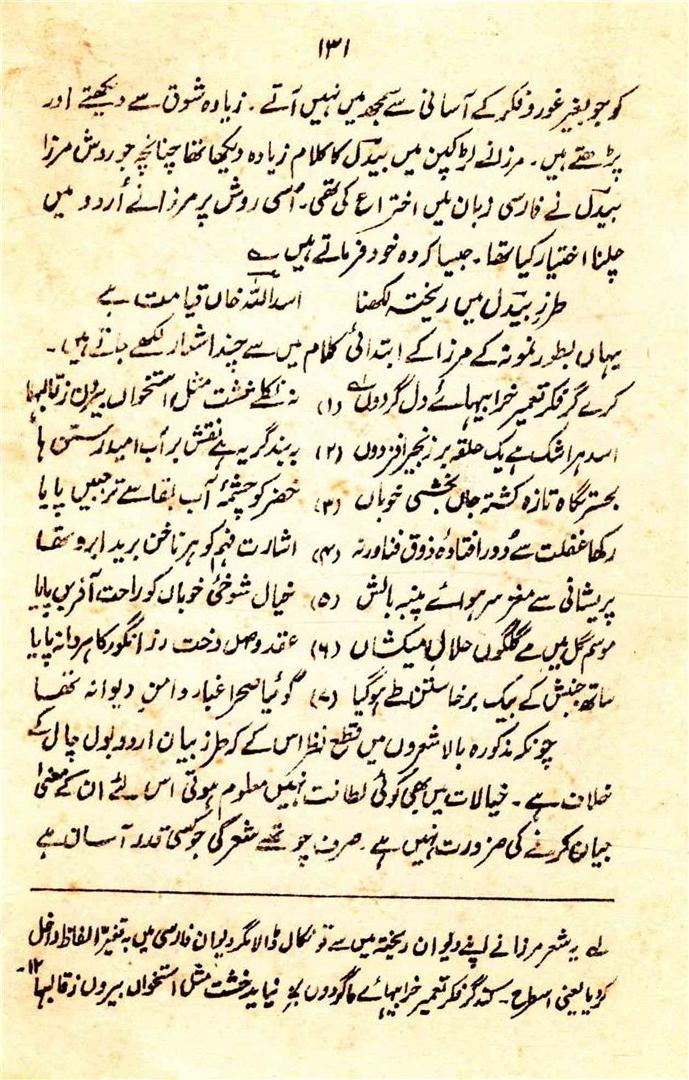 ۱۳۱
کو جو بغیر غور و فکر کے آسانی سے سمجھ میں نہیں آتے۔ زیادہ شوق سے دیکھتے اور
پڑھتے ہیں۔ مرزا نے لڑکپن میں بیدل کا کلام زیادہ دیکھا تھا چنانچہ جو روش مرزا
بیدل نے فارسی زبان میں اختراع کی تھی۔ اُسی روش پر مرزا نے اُردو میں
چلنا اختیار کیا تھا۔ جیسا کہ وہ خود فرماتے ہیں ؎
طرز بیدل میں ریختہ لکھنا اسد اللہ خاں قیامت ہے
یہاں بطور نمونہ کے مرزا کے ابتدائی کلام میں سے چند اشعار لکھے جاتے ہیں۔
کرے گر فکر تعمیر خرابیہائے دل گردوں (۱) نہ نکلے خشت مثل استخواں بیرون ز قالبہا
اسد ہر اشک ہے یک حلقہ بر زنجیر افزدوں (۲) بہ بند گریہ ہے نقش بر آب امید رستن ہا
بحستر نگاہ ناز کشتہ جاں بخشی خوباں (۳) خضر کو چشمۂ آب بقا سے تر جبیں پایا
رکھا غفلت سے دور افتادۂ ذوق فنا ورنہ (۴) اشارت فہم کو ہر ناخن بریدہ ابرو تھا
پریشانی سے مغز سر ہوا ہے پنبہ بالش (۵) خیال شوخیٔ خوباں کو راحت آفریں پایا
موسم گل میں مے گلگوں حلال میکشاں (۶) عقد وصل دخت رز انگور کا ہر دانہ پایا
ساتھ جنبش کے بیک برخاستن طے ہو گیا (۷) گوئیا صحرا غبار دامن دیوانہ تھا
چونکہ مذکورہ بالا شعروں میں قطع نظر اس کے کہ طرز بیان اردو بول چال کے
خلاف ہے۔ خیالات میں بھی کوئی لطافت نہیں معلوم ہوتی اس لئے ان کے معنی
بیان کرنے کی ضرورت نہیں ہے۔ صرف چوتھے شعر کی جو کسی قدر آسان ہے
لہ یہ شعر مرزا نے اپنے دیوان ریختہ میں سے تو نکال ڈالا مگر دیوان فارسی میں بہ تغیر الفاظ داخل
کر دیا یعنی اسطرح۔ کند گر فکر تعمیر خرابیہائے ما گردوں نیاید خشت مثل استخواں بیروں ز قالبہا ۱۲۔